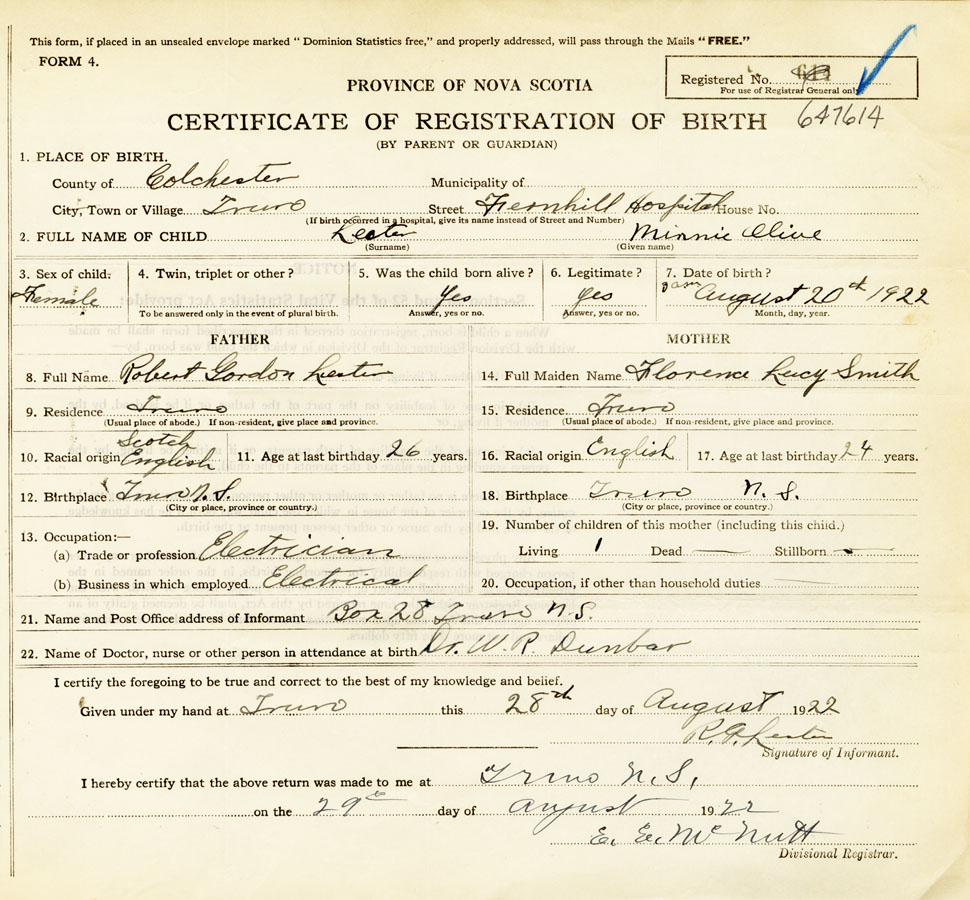 This form, if placed in an unsealed envelope marked "Dominion Statistics free," and properly addressed, will pass through the Mails "FREE."
FORM 4.
PROVINCE OF NOVA SCOTIA
Registered No.
For use of Registrar General only
CERTIFICATE OF REGISTRATION OF BIRTH 647614
(BY PARENT OR GUARDIAN)
1. PLACE OF BIRTH.
County of Colchester Municipality of
City, Town or Village Truro Street Fernhill Hospital House No.
(If birth occurred in a hospital, give its name instead of Street and Number)
2. FULL NAME OF CHILD Lester Minnie Olive
(Surname) (Given name)
3. Sex of child. 4. Twin, triplet or other? 5. Was the child born alive? 6. Legitimate? 7. Date of birth?
Female Yes Yes August 20th 1922
To be answered only in the event of plural birth. Answer, yes or no. Answer, yes or no. Month, day, year.
FATHER MOTHER
8. Full Name Robert Gordon Lester 14. Full Maiden Name Florence Lucy Smith
9. Residence Truro 15. Residence Truro
(Usual place of abode.) If non-resident, give place and province. (Usual place of abode.) If non-resident, give place and province.
10. Racial origin Scotch English 11. Age at last birthday 26 years. 16. Racial origin English 17. Age at last birthday 24 years.
12. Birthplace Truro N.S. 18. Birthplace Truro N.S.
(City or place, province or country.) (City or place, province or country.)
13. Occupation:— 19. Number of children of this mother (including this child.)
(a) Trade or profession Electrician Living 1 Dead — Stillborn —
(b) Business in which employed Electrical 20. Occupation, if other than household duties
21. Name and Post Office address of Informant Box 28 Truro N.S.
22. Name of Doctor, nurse or other person in attendance at birth Dr. W. R. Dunbar
I certify the foregoing to be true and correct to the best of my knowledge and belief.
Given under my hand at Truro this 28th day of August 1922
R. G. Lester
Signature of Informant.
I hereby certify that the above return was made to me at Truro N.S.,
on the 29th day of August 1922
E. E. McNutt
Divisional Registrar.